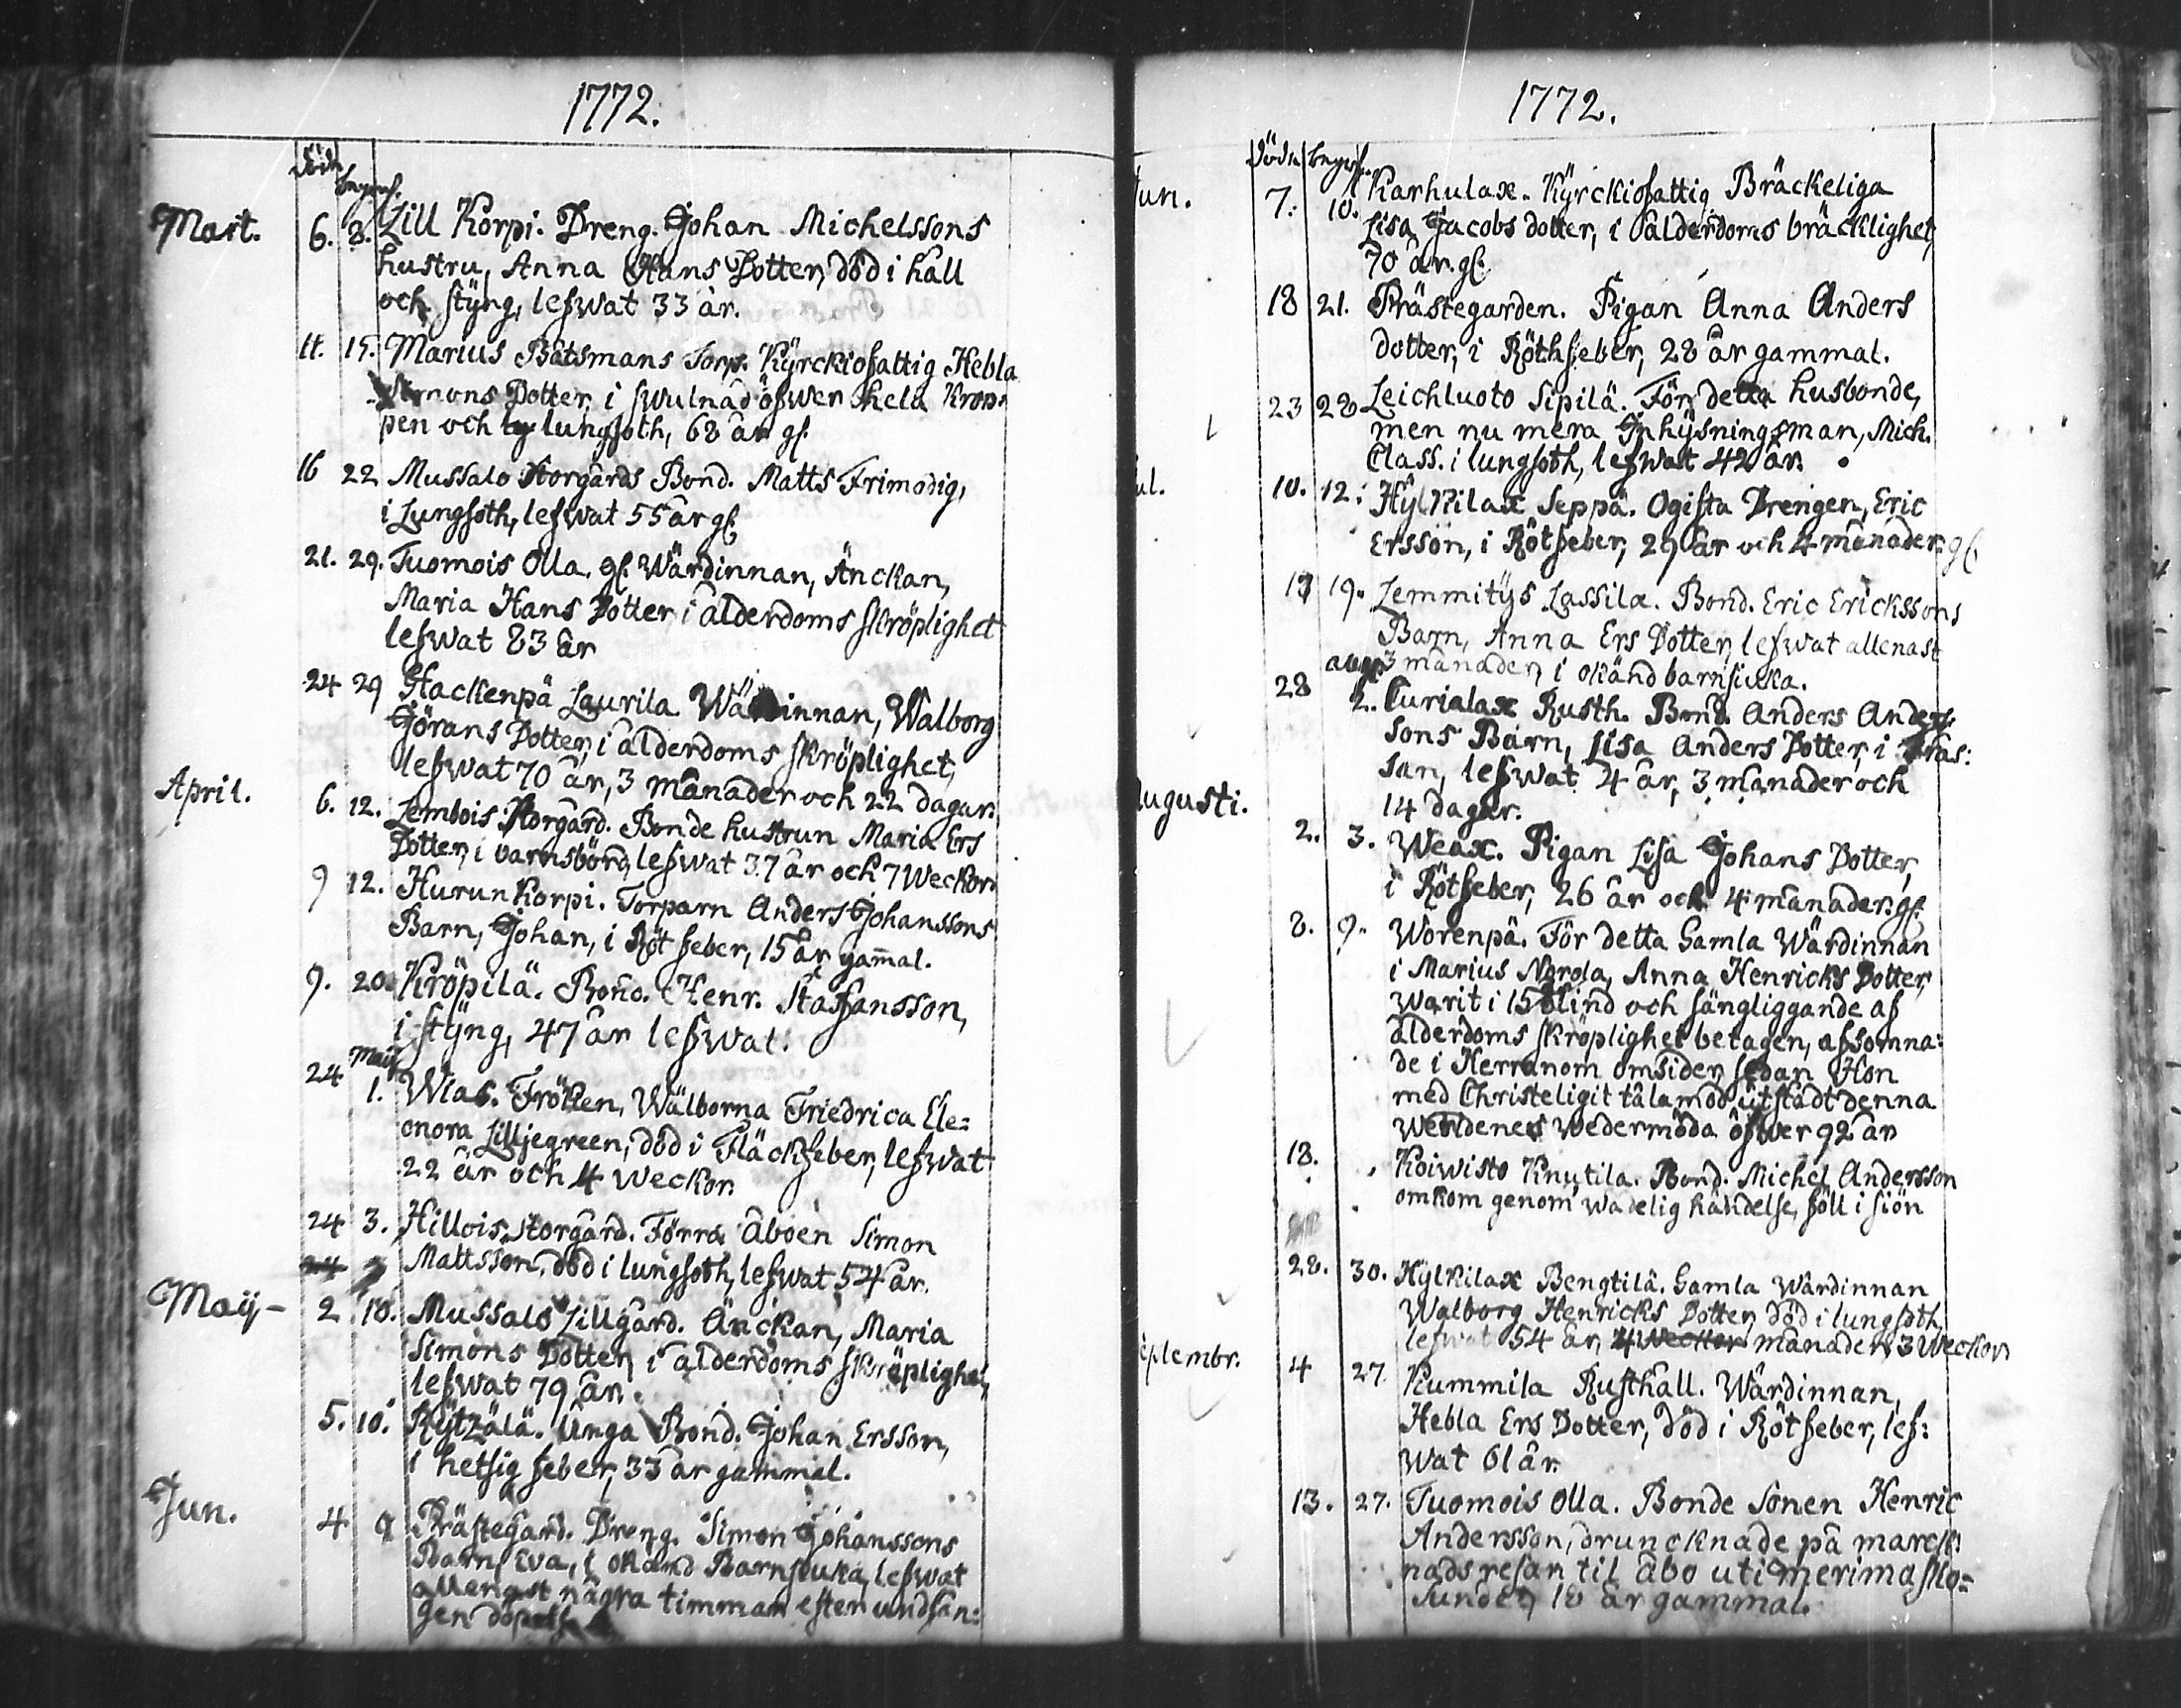 1772.
Död. Begraf.
Mart. 6. 8. Lill Korpi. Dreng. Johan Michelssons
hustru, Anna Hans Dotter, död i håll
och styng, lefwat 33 år.
11. 15. Marius Båtsmans Torp. Kyrckiofattig Hebla
Simons Dotter, i swulnad öfwer hela Krop-
pen och lungsoth, 68 år gl.
16 22 Mussalo Storgårds Bond. Matts Frimodig,
i Lungsoth, lefwat 55 år gl.
21. 29. Tuomois Olla. gl. Wärdinnan, Änckan,
Maria Hans Dotter i ålderdoms skröplighet
lefwat 83 år
24 29 Hackenpä Laurila Wärdinnan, Walborg
Görans Dotter, i ålderdoms skröplighet,
lefwat 70 år, 3 månader och 22 dagar.
April. 6. 12. Lembois Storgård. Bonde hustrun Maria Ers
Dotter, i barnsbörd, lefwat 37 år och 7 Weckor.
9 12. Hurun Korpi. Torparn Anders Johanssons
Barn, Johan, i Röt feber, 15 år gam̄al.
9. 20. Kröpilä. Bond. Henr. Staffansson,
i styng, 47 år lefwat.
24 Maij 1. Wias. Fröken, Wälborna Friedrica Ele=
onora Lilljegreen, död i Fläckfeber, lefwat
22 år och 4 weckor.
24 3. Hillois Storgård. Förra Åboen Simon
Mattsson, död i lungsoth, lefwat 54 år.
Maij - 2 10. Mussalo Lillgård. Änckan, Maria
Simons Dotter, i ålderdoms skröplighet,
lefwat 79 år.
5. 10. Rytzälä. Unga Bond. Johan Ersson,
i hetsig feber, 33 år gammal.
Jun. 4 9 Prästegård. Dreng. Simon Johanssons
Barn Eva, i okänd Barnsiuka, lefwat
allenast några timmar efter undfån:
gen
1772.
Döde Begraf.
Jun. 7. 10. Karhulax. Kyrckiofattig Bräckeliga
Lisa Jacobs dotter, i ålderdoms bräcklighet,
70 år. gl.
18 21. Prästegården. Pigan Anna Anders
dotter, i Röthfeber, 28 år gammal.
23 28 Leichluoto Sipilä. För detta husbonde,
men nu mera Inhysningsman, Mich.
Class. i lungsoth, lefwat 42 år.
Jul. 10. 12. Hylkilax Seppä. Ogifta Drengen, Eric
Ersson, i Rötfeber, 29 år och 4 månader. gl.
19. Lemmitys Lassila. Bond. Eric Erickssons
Barn, Anna Ers Dotter, lefwat allenast
3 månader, i okänd barnsiucka.
28 aug. 2. Curialax Rusth. Bond. Anders Anders-
sons Barn, Lisa Anders Dotter, i Fräs:
san, lefwat 4 år, 3 månader och
14 dagar.
Augusti. 2. 3. Weax. Pigan Lisa Johans Dotter,
i Rötfeber, 26 år och 4 månader. gl.
8. 9. Worenpä. För detta Gamla Wärdinnan
i Marius Norola, Anna Henricks Dotter,
warit i 15 blind och sängliggande af
ålderdoms skröplighet betagen, afsomna:
de i Herranom omsider, sedan Hon
med Christeligit tålamod utstådt denna
werldenes wedermöda öfwer 92 år
18. Koiwisto Knutila. Bond. Michel Andersson
omkom genom wådelig händelse, föll i siön
28. 30. Hylkilax Bengtilä. Gamla Wärdinnan
Walborg Henricks Dotter, död i lungsoth,
lefwat 54 år, 4 månader, 3 Weckor
Septembr. 4 27. Kummila Rusthåll. Wärdinnan,
Hebla Ers Dotter, död i Rötfeber, lef:
wat 61 år.
13. 27. Tuomois Olla. Bonde Sonen Henric
Andersson, druncknade på marck:
nads resan til Åbo uti merimasko=
sundet, 18 år gammal.